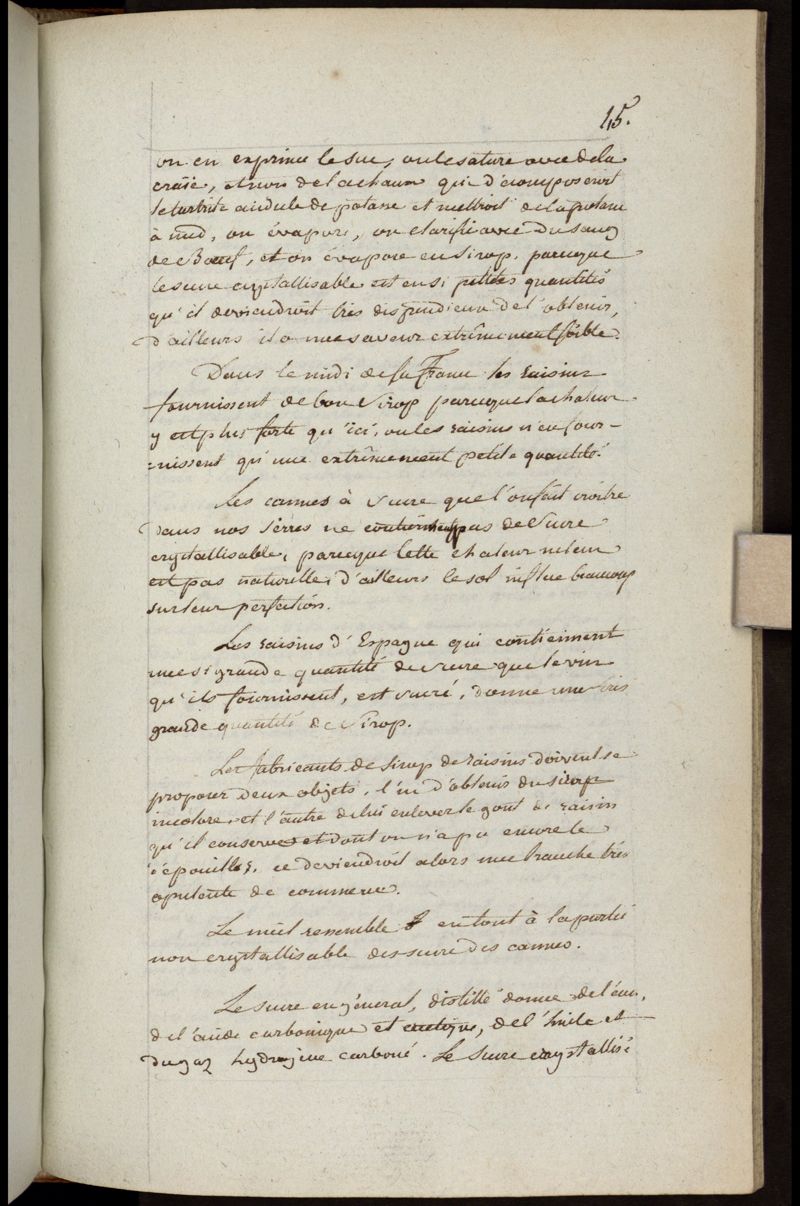 45.
on en exprime le suc, on le sature avec de la
craïe, et non de la chaux qui décomposeroit
le tartrite acidule de potasse et mettroit de la potasse
à nud, on évapore, on clarifie avec du sang
de Bœuf, et on évapore en sirop, parceque
le sucre crystallisable est en si petites quantités
qu'il deviendroit très dispendieux de l'obtenir,
d'ailleurs il a une saveur extrêmement foible.
Dans le midi de la France les raisins
fournissent de bon sirop parceque la chaleur
y est plus forte qu'ici, ou les raisins n'en four-
-nissent qu'une extrêmement petite quantité.
Les cannes à sucre que l'on fait croitre
dans nos serres ne contiennent pas de sucre
crystallisable, parceque cette chaleur
est pas naturelle, d'ailleurs le sol influe beaucoup
sur leur perfection.
Les raisins d'Espagne qui contiennent
une si grande quantité de sucre que le vin
qu'ils fournissent, est sucré, donne une très
grande quantité de sirop.
Les fabricants de sirop de raisins doivent se
proposer deux objets, l'un d'obtenir du sirop
incolore et l'autre de lui enlever le gout de raisin
qu'il conserve et dont on n'a pu encore le
dépouiller, ce deviendroit alors une branche très
opulente de commerce.
Le miel ressemble en tout à la partie
non crystallisable des sucre des cannes.
Le sucre en général, distillé donne de l'eau,
de l'acide carbonique et acetique, de l'huile et
du gaz hydrogène carboné. Le sucre crystallisé